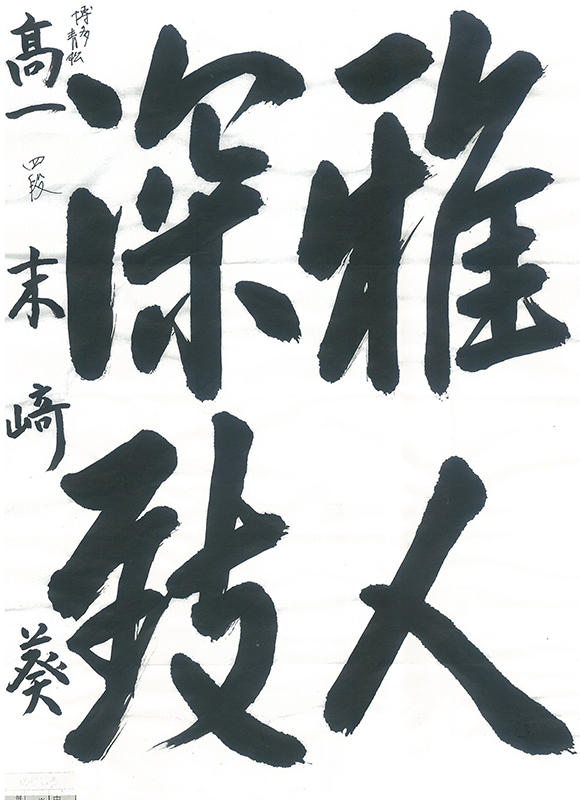 雅人
深致
博多青松
高一 四段 末崎 葵